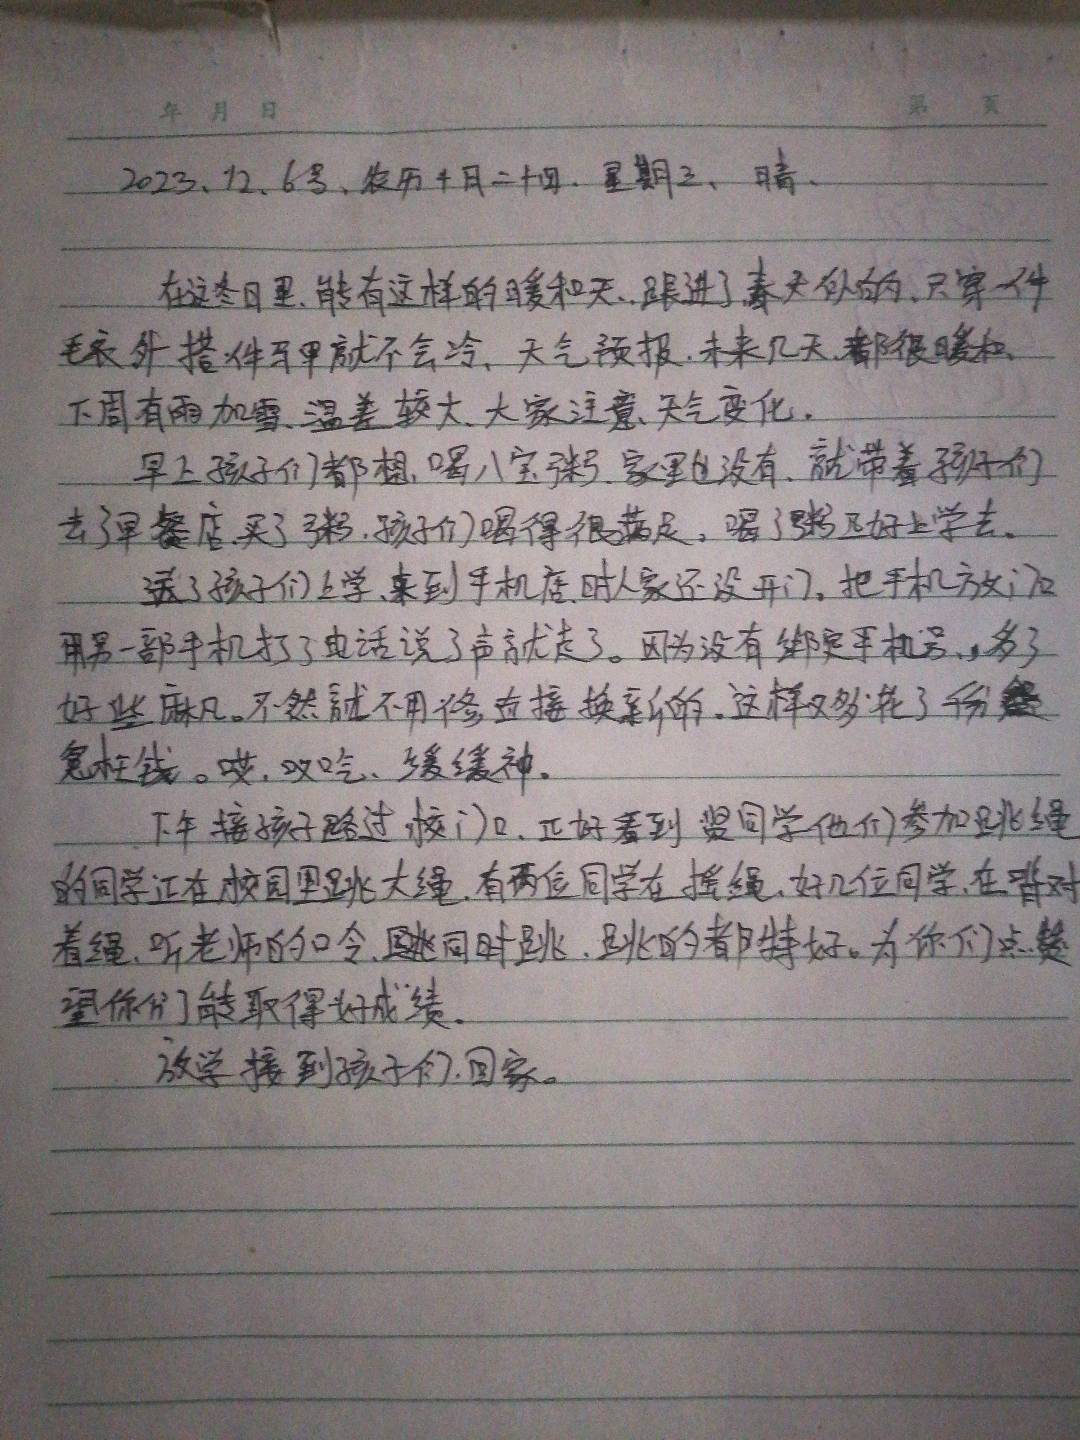 年 月 日 第 页
2023、12、6号、农历十月二十四、星期三、晴、
在这冬日里、能有这样的暖和天、跟进了春天似的、只穿一件
毛衣外搭件马甲就不会冷、天气预报、未来几天、都很暖和、
下周有雨加雪、温差较大、大家注意、天气变化。
早上孩子们都想、喝八宝粥、家里也没有、就带着孩子们
去了早餐店、买了粥、孩子们喝得很满足。喝了粥正好上学去。
送了孩子们上学、来到手机店、时人家还没开门。把手机放门口
用另一部手机打了电话说了声就走了。因为没有绑定手机号、多了
好些麻凡。不然就不用修直接换新的。这样又多花了份
冤枉钱。哎、叹吃、缓缓神。
下午接孩子路过、校门口、正好看到 同学他们参加跳绳
的同学正在校园里跳大绳、有两位同学在摇绳、好几位同学、在背对
着绳、听老师的口令、跳同时跳、跳的都特好。为你们点赞
望你们能取得好成绩。
放学接到孩子们、回家。